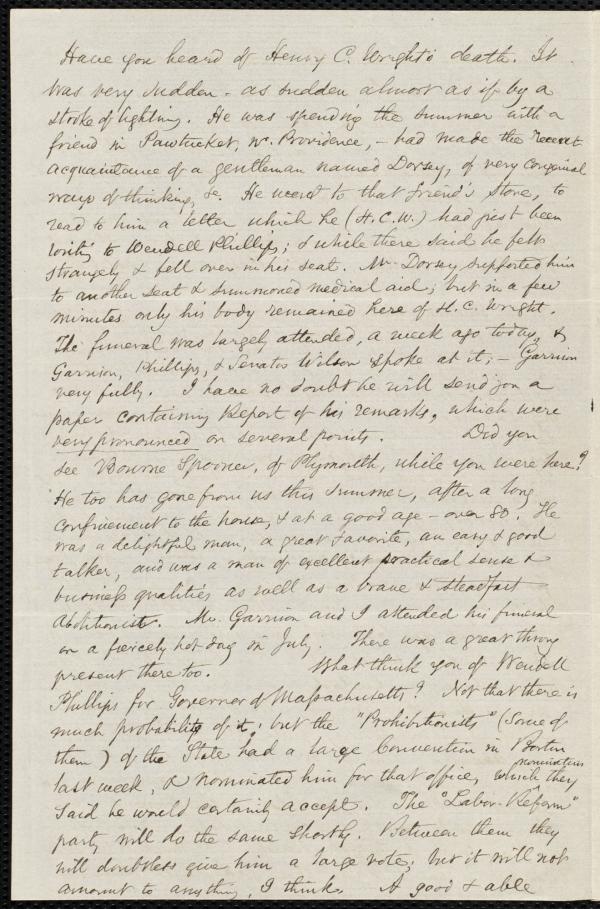 Have you heard of Henry C. Wright's death. It
was very sudden - as sudden almost as if by a
stroke of lighting. He was spending the summer with a
friend in Pawtucket, nr. Providence, - had made the recent
acquaintance of a gentleman named Dorsey, of very congenial
ways of thinking, &c. He went to that friend's store, to
read to him a letter which he (H.C.W.) had just been
writing to Wendell Phillips; & while there said he felt
strangely & fell over in his seat. Mr. Dorsey supported him
to another seat & summoned medical aid; but in a few
minutes only his body remained here of H. C. Wright.
The funeral was largely attended, a week ago today, &
Garrison, Phillips, & Senator Wilson spoke at it; - Garrison
very fully. I have no doubt he will send you a
paper containing Report of his remarks, which were
very pronounced on several points. Did you
see Bourne Spooner, of Plymouth, while you were here?
He too has gone from us this summer, after a long
confinement to the house, & at a good age - over 80. He
was a delightful man, a great favorite, an easy & good
talker, and was a man of excellent practical sense &
business qualities as well as a brave & steadfast
Abolitionist. Mr. Garrison and I attended his funeral
on a fiercely hot day in July. There was a great throng
present there too. What think you of Wendell
Phillips for Governor of Massachusetts? Not that there is
much probability of it; but the "Prohibitionists" (some of
them) of the State had a large Convention in Boston
last week, & nominated him for that office, which nomination they
said he would certainly accept. The "Labor-Reform"
party will do the same shortly. Between them they
will doubtless give him a large vote; but it will not
amount to anything, I think. A good & able